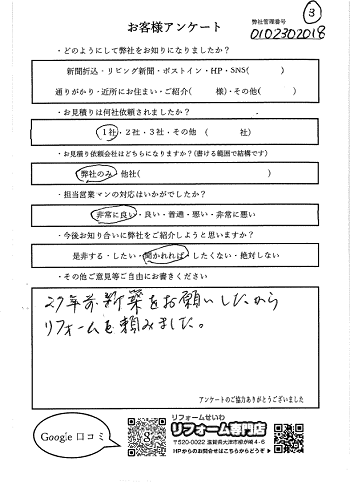 ③
お客様アンケート
弊社管理番号
0102302018
・どのようにして弊社をお知りになりましたか?
新聞折込・リビング新聞・ポストイン・HP・SNS( )
通りがかり・近所にお住まい・ご紹介( 様)・その他( )
・お見積りは何社依頼されましたか?
1社・2社・3社・その他 ( 社)
・お見積り依頼会社はどちらになりますか?(書ける範囲で結構です)
弊社のみ・他社( )
・担当営業マンの対応はいかがでしたか?
非常に良い・良い・普通・悪い・非常に悪い
・今後お知り合いに弊社をご紹介しようと思いますか?
是非する・したい・聞かれれば・したくない・絶対しない
・その他ご意見等ご自由にお書きください
27年前新築をお願いしたから
リフォームを頼みました。
アンケートのご協力ありがとうございました
Google 口コミ
リフォームせいわ
リフォーム専門店
〒520-0022 滋賀県大津市柳が崎4-6
HPからのお問合せはこちらからどうぞ